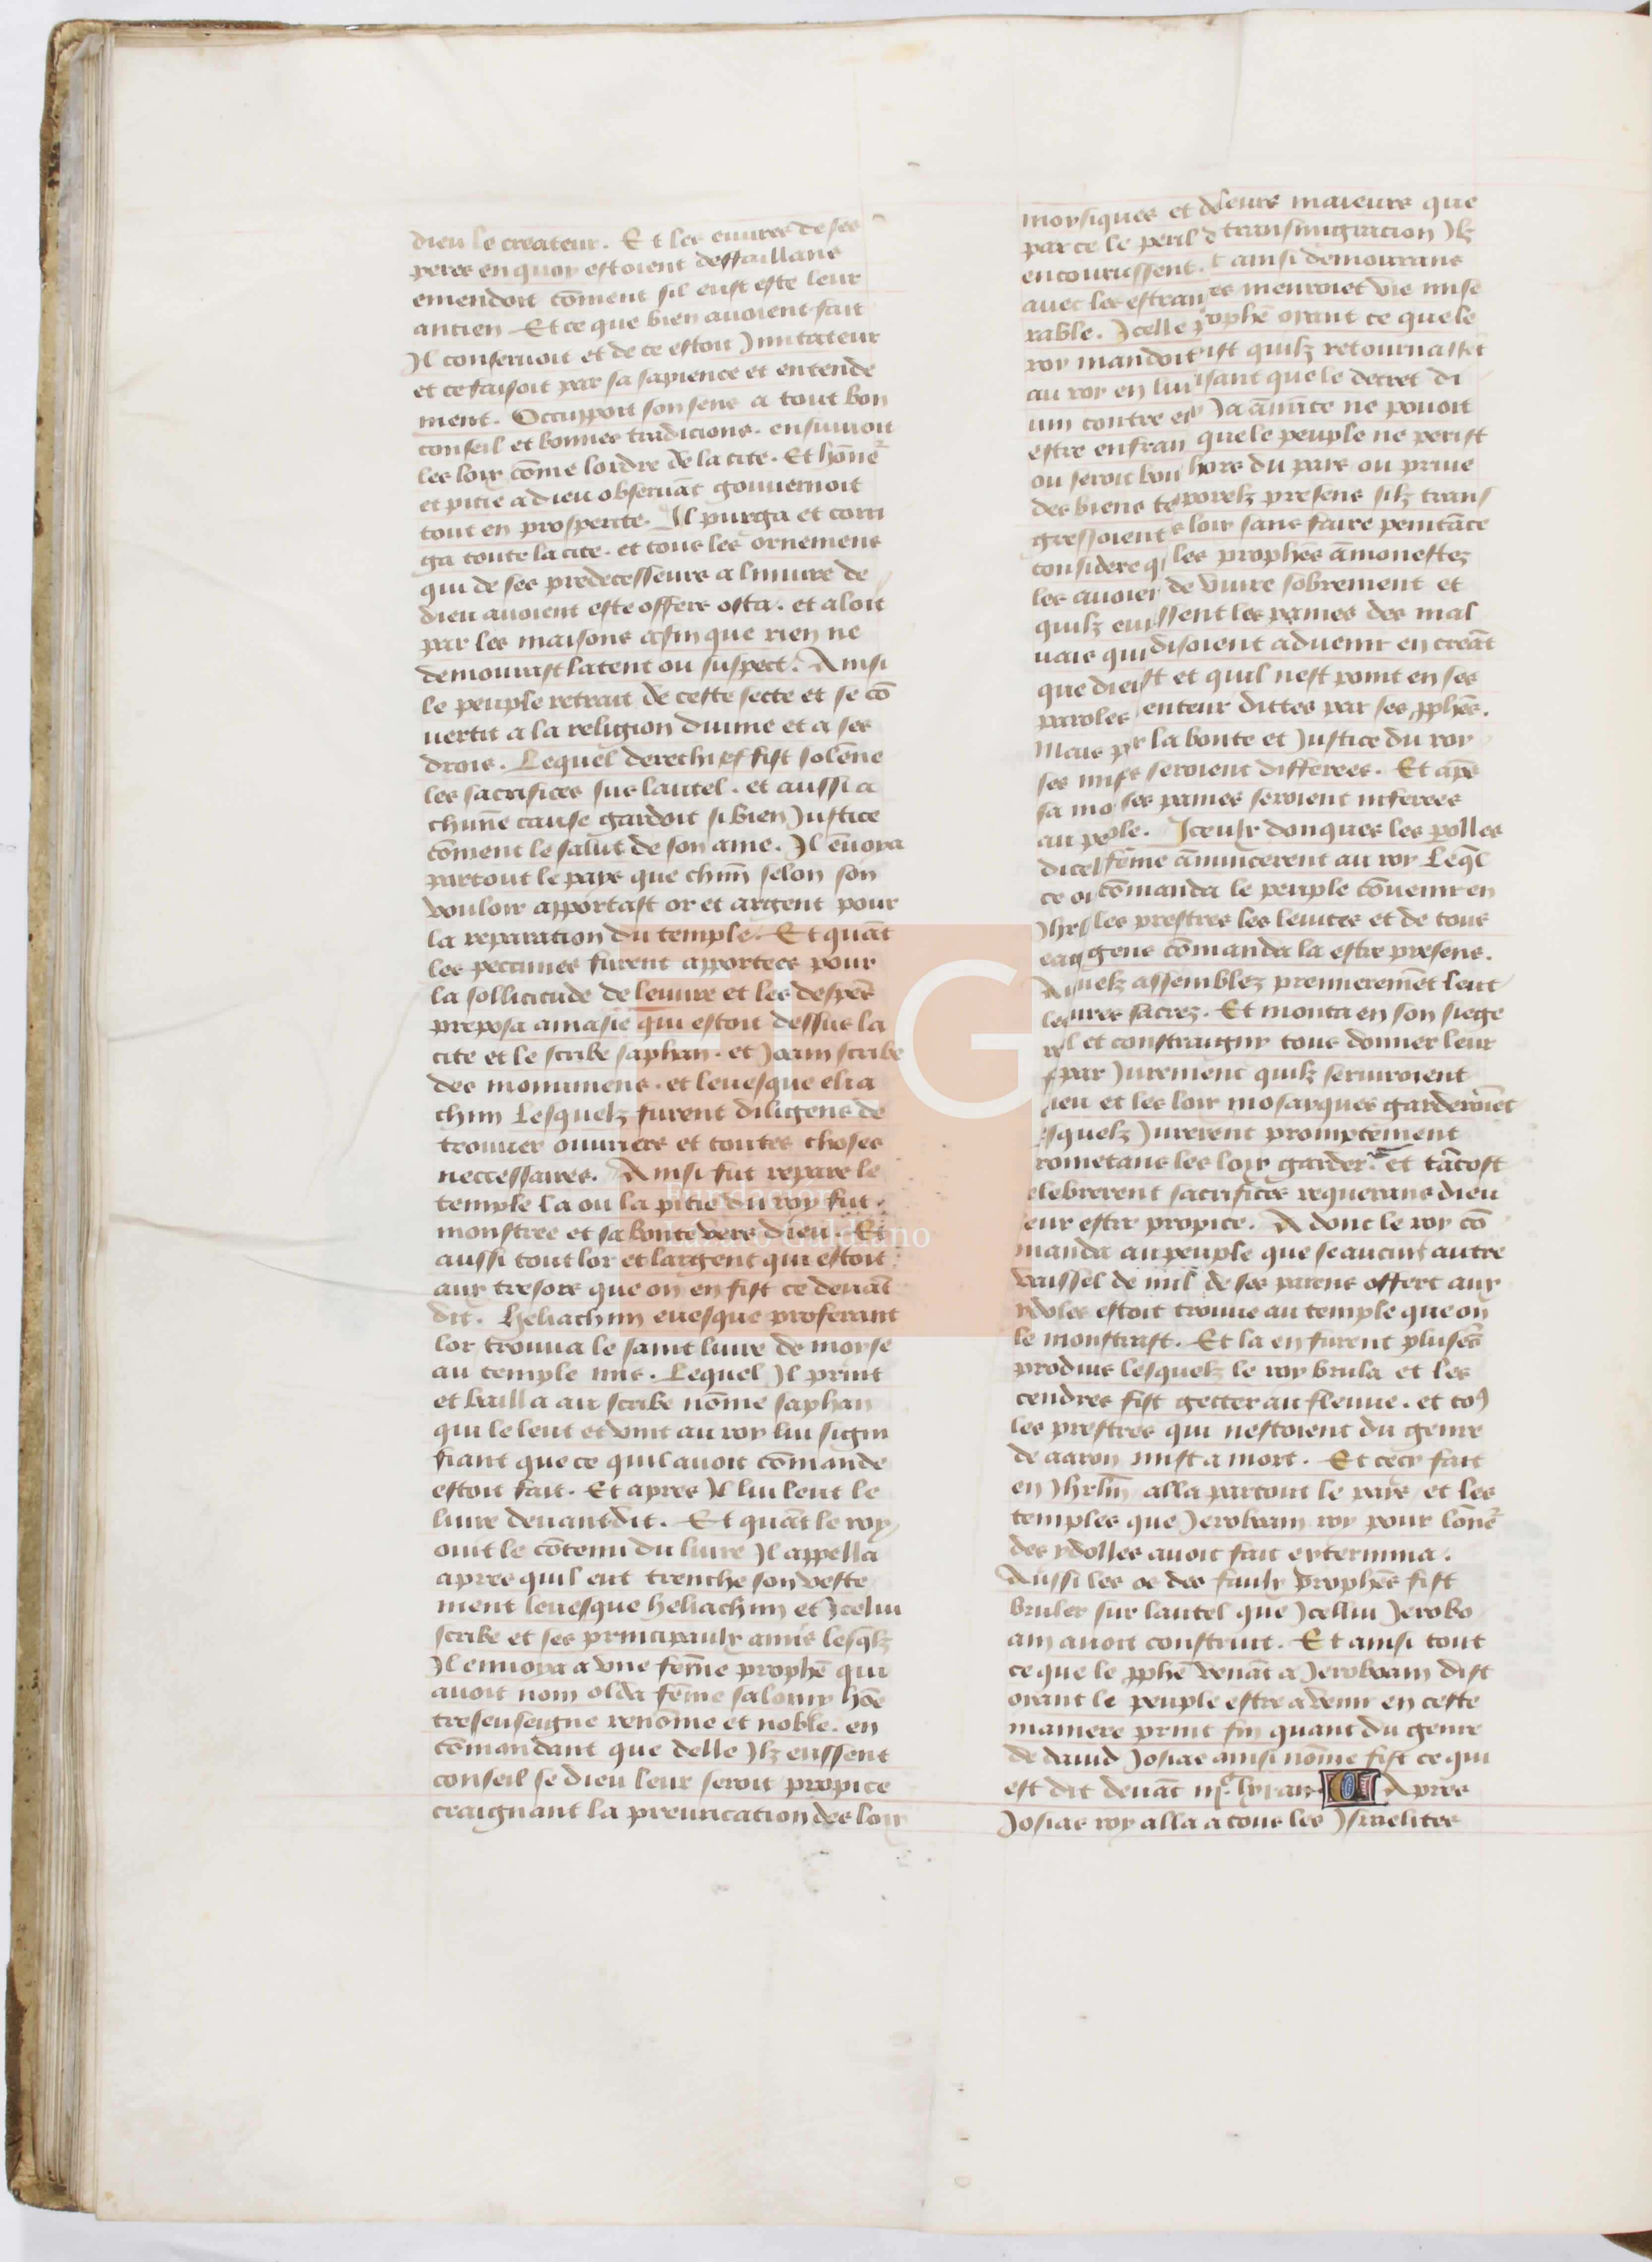 dieu le createur. Et les euures de ses
peres en quoy estoient deffaillans
emendoit cōment sil eust este leur
ancien Et ce que bien auoient fait
Jl conseruoit et de ce estoit Jmitateur
et ce faisoit par sa sapience et entende
ment. Occuppoit son sens a tout bon
conseil et bonnes tradicions. ensuiuoit
les loix cōme lordre de la cite. Et hōneʳ
et pitie a dieu obseruāt gouuernoit
tout en prosperite. Jl purga et corri
ga toute la cite. et tous les ornemens
qui de ses predecesseurs a liniure de
dieu auoient este offers osta. et aloit
par les maisons afin que rien ne
demourast latent ou suspect. Ainsi
le peuple retrait de ceste secte et se cō
uertit a la religion diuine et a ses
drois. Lequel derechief fist solēne
les sacrifices sur lautel. et aussi a
chūne cause gardoit si bien Justice
cōment le salut de son ame. Jl ēuoya
partout le pays que chūn selon son
vouloir apportast or et argent pour
la reparation du temple. Et quāt
les peccunes furent apportees pour
la sollicitude de leuure et les despēs
preposa amasie qui estoit dessus la
cite et le scribe saphan. et Joam scribe
des monumens. et leuesque elia
chim Lesquelz furent diligens de
trouuer ouuriers et toutes choses
neccessaires. Ainsi fut repare le
temple la ou la pitie du roy fut
monstree et sa bonte vers dieu. Et
aussi tout lor et largent qui estoit
aux tresors que on en fist ce deuāt
dit. Heliachim euesque proferant
lor trouua le saint liure de moyse
au temple mis. Lequel Jl print
et bailla au scribe nōme saphan
qui le leut et vint au roy lui signi
fiant que ce quil auoit cōmande
estoit fait. Et apres Jl lui leut le
liure deuantdit. Et quāt le roy
ouit le cōtenu du liure Jl appella
apres quil eut trenche son veste
ment leuesque heliachim et Jcelui
scribe et ses principaulx amis lesq̄lz
Jl enuoya a vne fēme prophē qui
auoit nom olda fēme saloniy hōe
tresenseigne renōme et noble. en
cōmandant que delle Jlz eussent
conseil se dieu leur seroit propice
craignant la preuarication des loix
moysiques et de leurs maieurs que
par ce le peril d transmigracion Jlz
encourussent. t ainsi demourans
auec les estran es menroiēt vie mise
rable. Jcelle p ophē oyant ce que le
roy mandoit ist quilz retournassēt
au roy en lui isant que le decret di
uin contre e Ja āmite ne pouoit
estre enfran que le peuple ne perist
ou seroit bou hors du pays ou priue
des biens tē porelz presens silz trans
gressoient s loix sans faire penitāce
considere q les prophēs āmonestez
les auoien de viure sobrement et
quilz eui ssent les paines des mal
uais qui disoient aduenir en creāt
que dieu st et quil nest point en ses
paroles enteur dittes par ses pphēs.
Mais p r la bonte et Justice du roy
ses mi s seroient differees. Et apēs
sa mo ses paines seroient inferees
au pe ple. Jceulx donques les polles
dicel fēme ānuncerent au roy Leq̄l
ce o cōmanda le peuple cōuenir en
Jhrl les prestres les leuites et de tous
eag gens cōmanda la estre presens.
Au uelz assemblez premieremēt leut
le ures sacrez. Et monta en son siege
r l et constraigny tous donner leur
f par Jurement quilz seruiroient
ieu et les loix mosayques garderoiēt
squelz Jurerent promptement
rometans les loix garder. et tātost
elebrerent sacrifices requerans dieu
eur estre propice. A donc le roy cō
manda au peuple que se aucun autre
vaissel de nul de ses parens offert aux
ydoles estoit trouue au temple que on
le monstrast. Et la en furent plusēʳs
produis lesquelz le roy brula et les
cendres fist getter au fleuue. et toꝯ
les prestres qui nestoient du genre
de aaron mist a mort. Et cecy fait
en Jhrlm̄ alla partout le pays et les
temples que Jeroboam roy pour lōneʳ
des ydolles auoit fait extermina.
Aussi les os des faulx prophēs fist
bruler sur lautel que Jcellui Jerobo
am auoit construit. Et ainsi tout
ce que le pphē venāt a Jeroboam dist
oyant le peuple estre a venir en ceste
maniere print fin quant du genre
de dauid Josias ainsi nōme fist ce qui
est dit deuāt iijᶜ lxi ans Apres
Josias roy alla a tous les Jsraelites